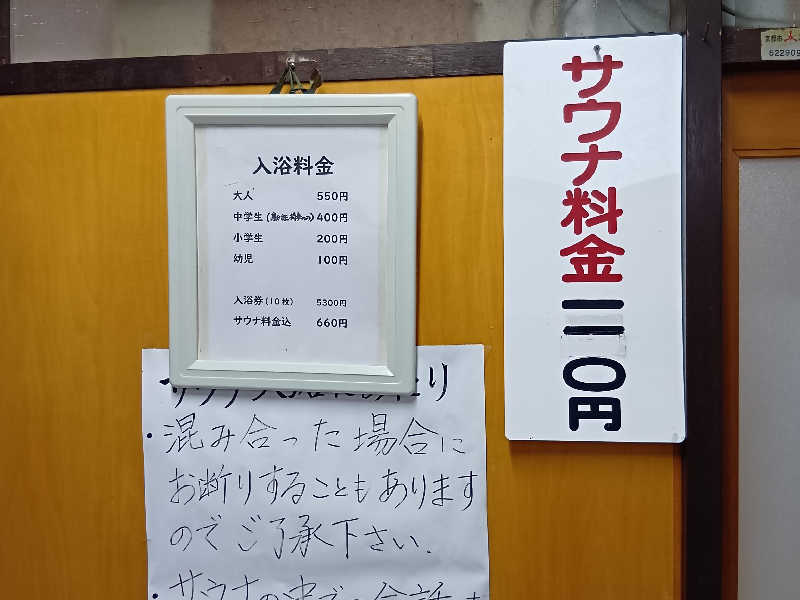 入浴料金
大人 550円
中学生 400円
小学生 200円
幼児 100円
入浴券(10枚) 5300円
サウナ料金込 660円
サウナ料金一一〇円
・混み合った場合に
お断りすることもあります
のでご了承下さい.
・サウナの